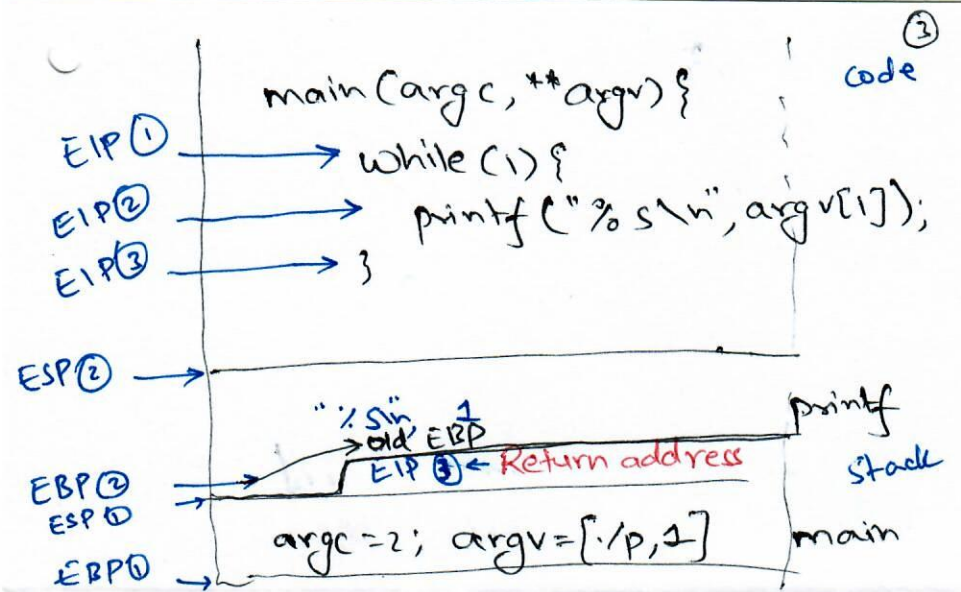 ③
code
main (argc, **argv) {
EIP ①
while (1) {
EIP ②
printf ("%s\n", argv[1]);
EIP ③
}
ESP ②
"%s\n, 1
printf
old EBP
EIP ③ ← Return address
stack
EBP ②
ESP ①
argc = 2; argv = [./p, 1]
main
EBP ①